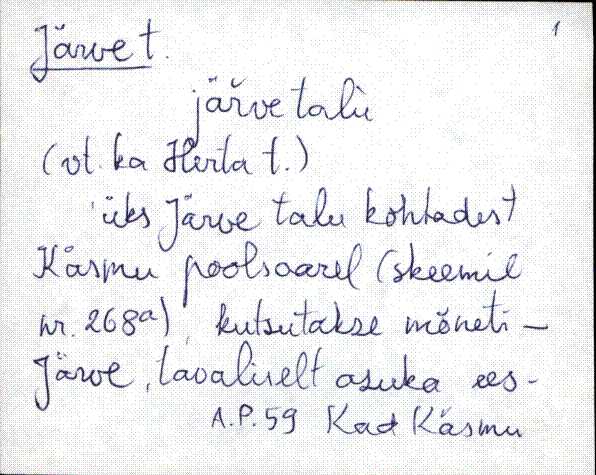 1
Järve t.
järve talu
(vt. ka Herta t.)
üks Järve talu kohtadest
Käsmu poolsaarel (skeemil
nr. 268a) kutsutakse mõneti –
Järve, tavaliselt asuka ees-
A.P. 59 Kad Käsmu